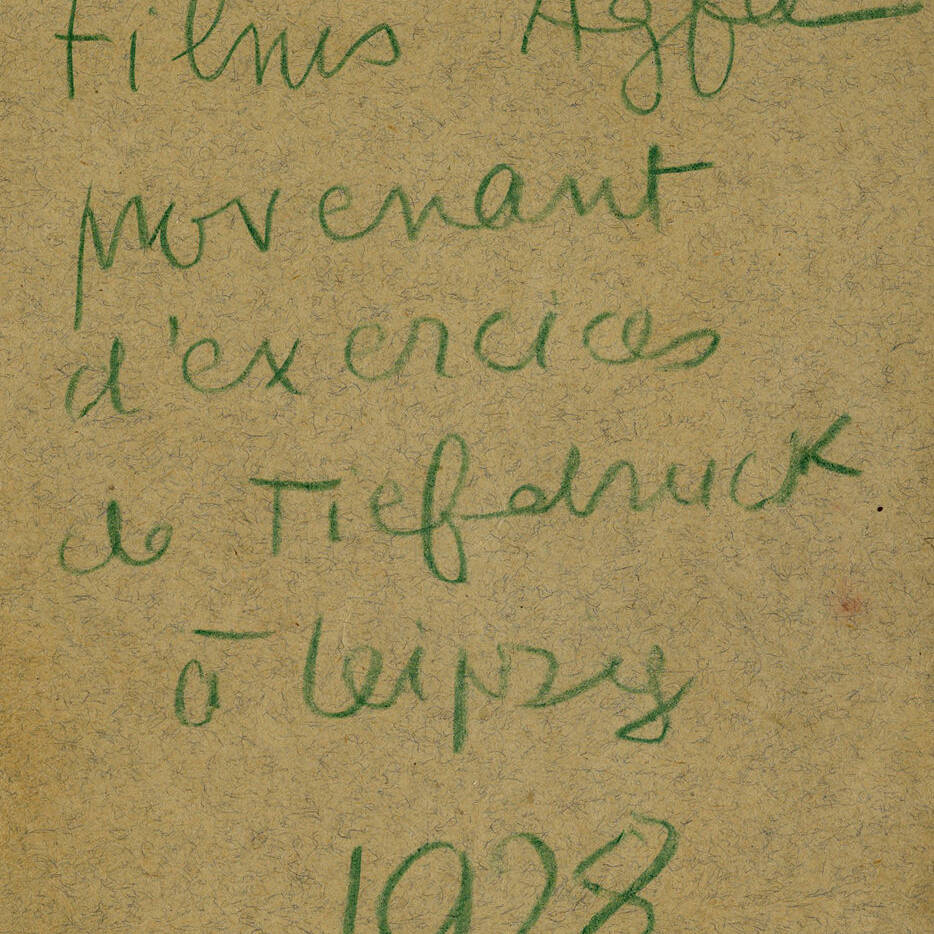 Films Agfa
provenant
d'exercices
de Tiefdruck
à Leipzig
1928